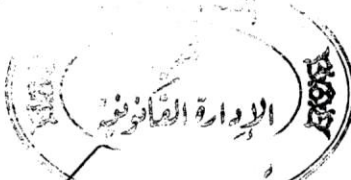 الإدارة القانونية